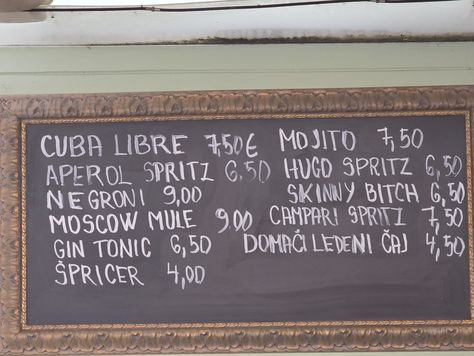 CUBA LIBRE 7,50€
APEROL SPRITZ 6,50
NEGRONI 9,00
MOSCOW MULE 9,00
GIN TONIC 6,50
ŠPRICER 4,00
MOJITO 7,50
HUGO SPRITZ 6,50
SKINNY BITCH 6,50
CAMPARI SPRITZ 7,50
DOMAĆI LEDENI ČAJ 4,50